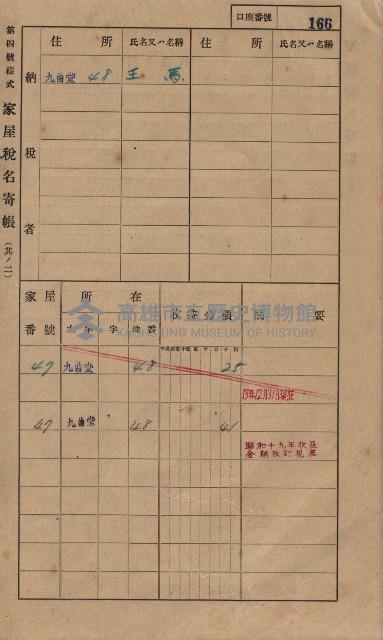 口座番號 166
第四號樣式 家屋稅名寄帳 (其ノ二)
納稅者
住所 氏名又ハ名稱 住所 氏名又ハ名稱
九曲堂 48 王馬
家屋番號 所在 收益金額 摘要
大字 字 地番
47 九曲堂 48 25
13年12月31日現在
47 九曲堂 48 41
昭和十九年收益
金額改訂現在
高雄市立歷史博物館
KAOHSIUNG MUSEUM OF HISTORY